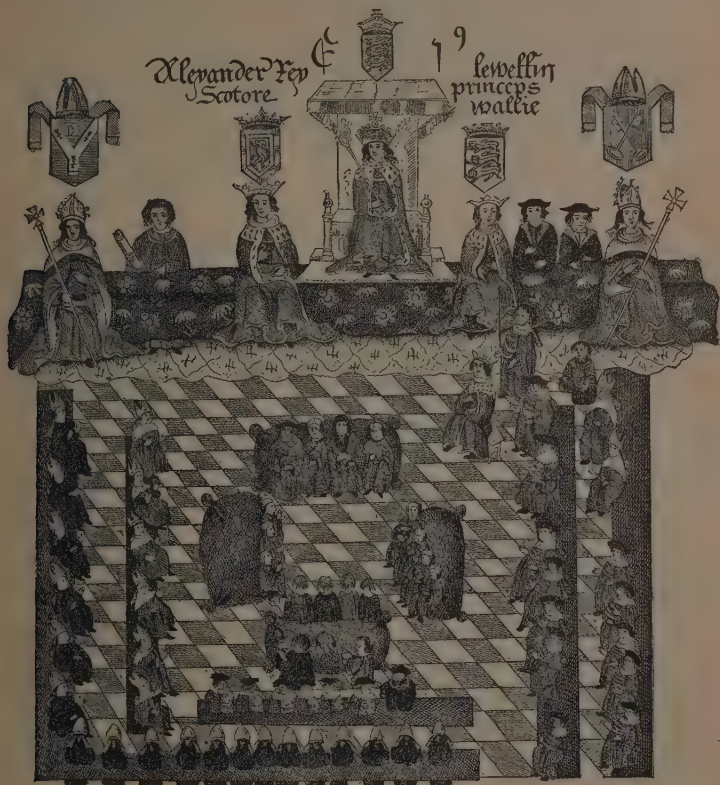 Alexander Rex
Scotore
E 1 9
lewellin
princeps
wallie